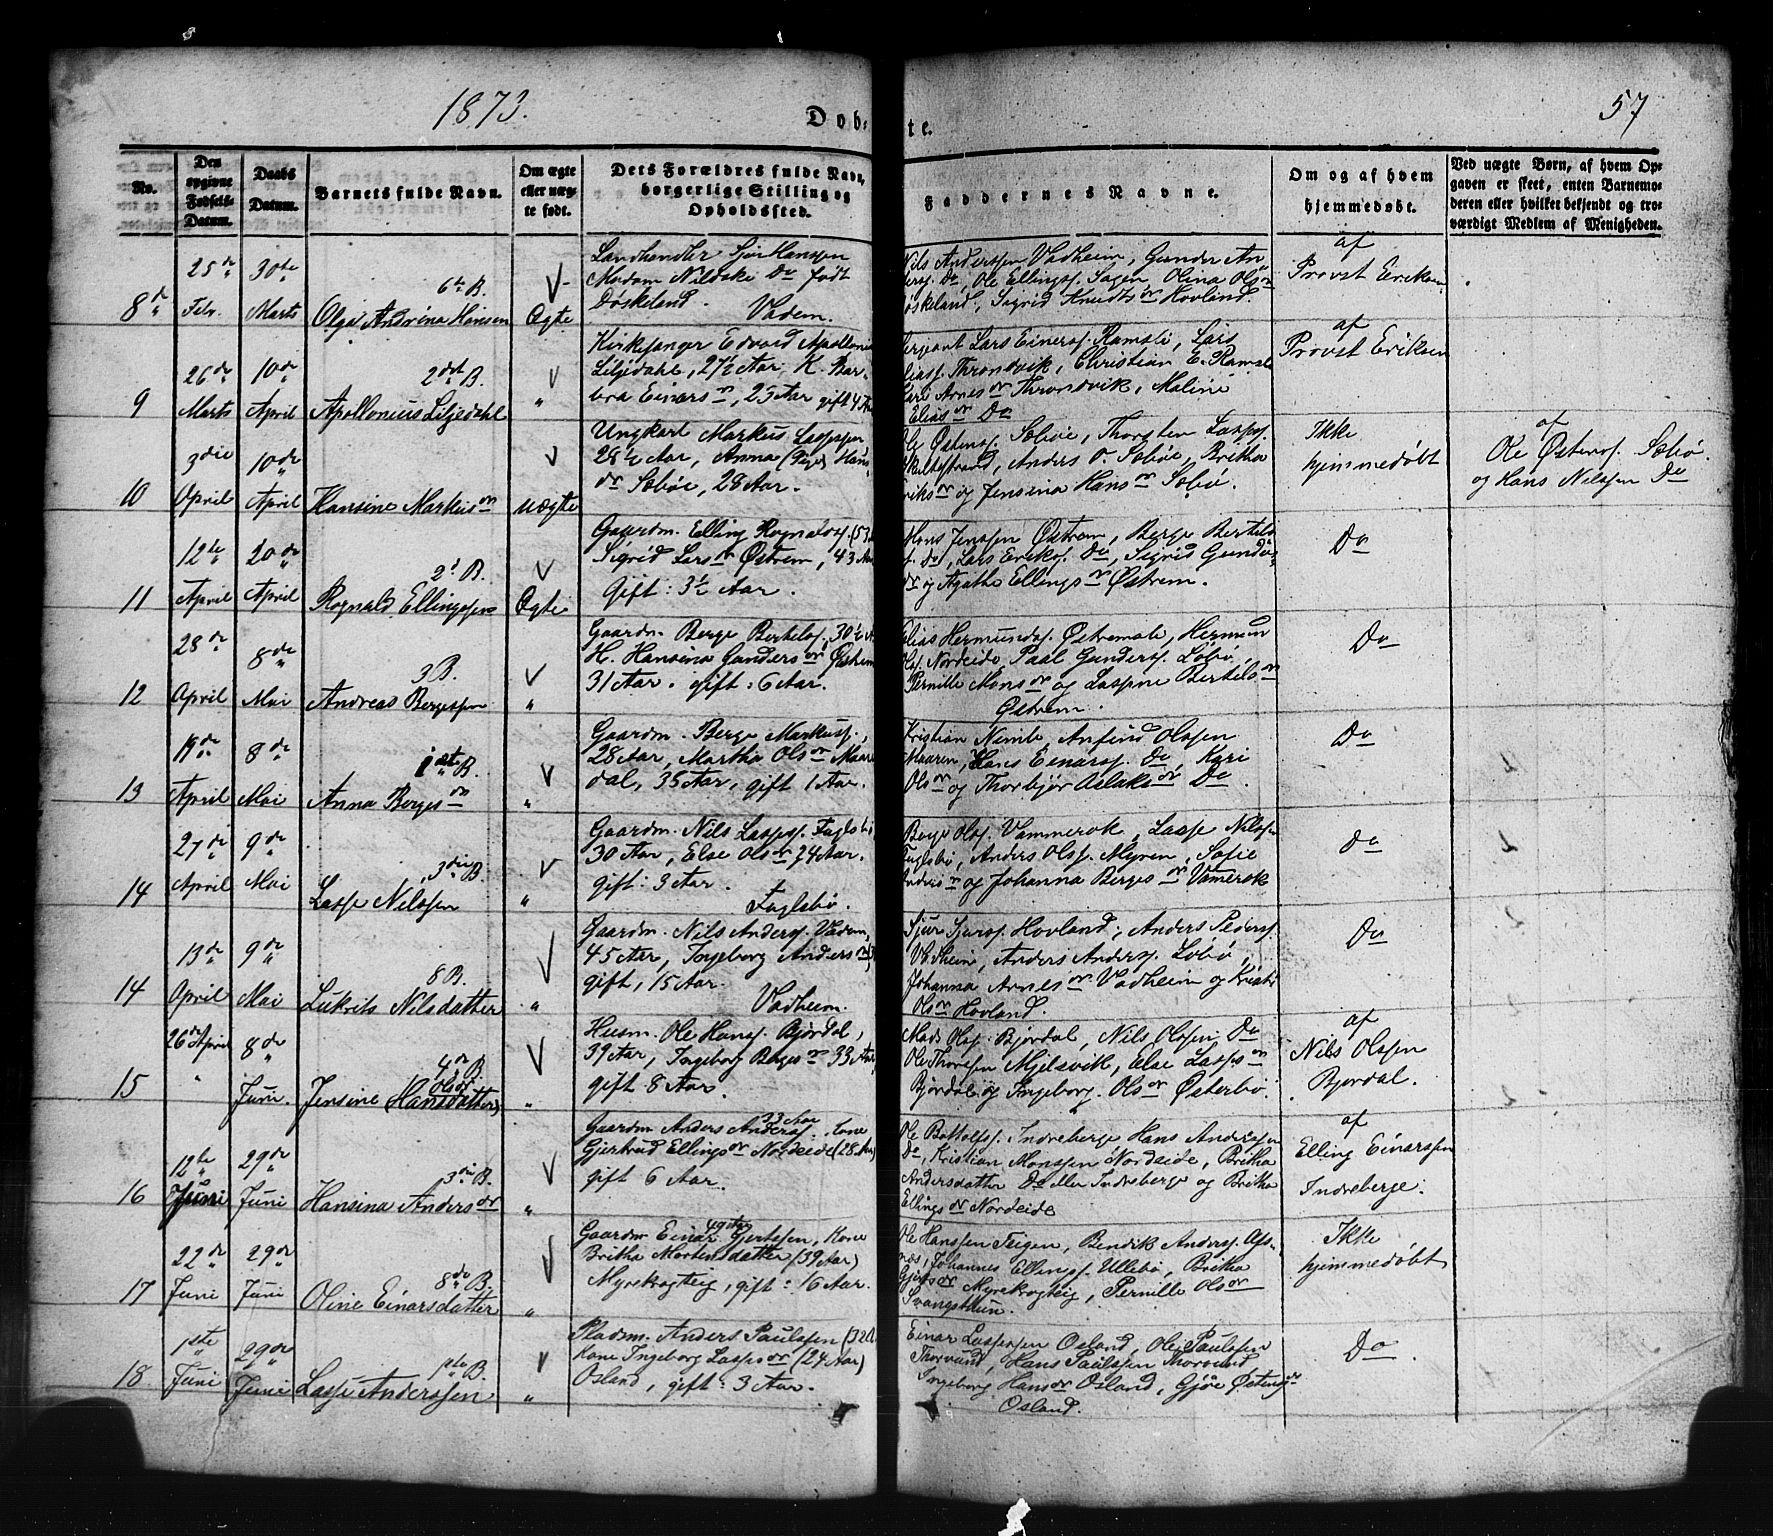 1873.
Døb-
te.
57
No.
Den opgivne Fødsels-Datum.
Daabs Datum.
Barnets fulde Navn.
Om ægte eller uæg-te født.
Dets Forældres fulde Navn, borgerlige Stilling og Opholdssted.
Faddernes Navne.
Om og af hvem hjemmedøbt.
Ved uægte Børn, af hvem Op-gaven er skeet, enten Barnemo-deren eller hvilket bekjendt og tro-værdigt Medlem af Menigheden.
8de
25de Febr.
30te Marts
6te B.
Olga Andrina Hansen
Ægte
Landhandler Sjur Hanssen
Madam Nilske Do født
Døskeland. Vadem.
Nils Anderssen Vadheim, Gunder An
dersf. Do, Ole Ellingsf. Sagen, Olina Olsdr
Døskeland, Sigrid Knudtsdr Hovland.
af
Provst Eriksen
9
26de Marts
10de April
2det B.
Apollonius Liljedahl
"
Kirkesanger Edvard Apollonius
Liljedahl, 27½ Aar, K. Bar-
bra Einarsdr, 25 Aar gift 4 Aar
Sergeant Lars Einersf. Ramsli, Lars
Eliasf. Throndvik, Christian E. Ramsli
Kari Arnesdr Throndvik, Maline
Eliasdr Do
af
Provst Eriksen
10
3die April
10de April
Hansine Markusdr
uægte
Ungkarl Markus Lassesen
28½ Aar, Anna (Pige) Hans
dr Søbøe, 28 Aar.
Ole Østensf. Søbøe, Thorsten Lassesf.
Skultestrand, Anders O. Søbøe, Britha
Eriksdr og Jensina Hansdr Søbø.
Ikke
hjemmedøbt
af
Ole Østensf. Søbø
og Hans Nilssen Do
11
12te April
20de April
2t B.
Rognald Ellingssen
Ægte
Gaardm. Elling Rognaldsf. (53
Sigrid Larsdr Østrem, 43 Aar
gift: 3½ Aar.
Hans Jenssen Østrem, Berge Bertels
sf. Do, Lars Eriksf. Do, Sigrid Gunders
dr og Agathe Ellingsdr Østrem.
Do
12
28de April
8de Mai
3 B.
Andreas Bergessen
"
Gaardm. Berge Bertelsf. 30½ A
H. Hansina Gundersdr Østrem
31 Aar. gift: 6 Aar.
Elias Hermundsf. Østremsli, Hermun
Olsf. Nordeide, Paal Gundersf. Løbø,
Pernille Monsdr og Lassine Bertelsdr
Østrem.
Do
13
19de April
8de Mai
1ste B.
Anna Bergesdr
"
Gaardm. Berge Markusf.,
28 Aar, Martha Olsdr Maare
dal, 35 Aar, gift 1 Aar.
Kristian Nimb, Anfind Olssen
Maaren, Hans Einarsf. Do, Kari
Olsdr og Thorbjør Aslaksdr Do
Do
14
27de April
9de Mai
3die B.
Lasse Nilssen
"
Gaardm. Nils Lassesf. Fuglsbø
30 Aar, Else Olsdr 24 Aar.
gift: 3 Aar.
Fuglsbø.
Berge Olsf. Vammerok, Lasse Nilssen
Fuglsbø, Anders Olsf. Myren, Sofie
Andersdr og Johanna Bergesdr Vamerok
Do
14
13de April
9de Mai
8 B.
Lukrits Nilsdatter
"
Gaardm. Nils Andersf. Vadem,
45 Aar, Ingeborg Andersdr (3
gift, 15 Aar.
Vadheim.
Sjur Sjursf. Hovland, Anders Pedersf.
Vadheim, Anders Andersf. Løbø,
Johanna Arnesdr Vadheim og Kristi
Olsdr Hovland.
Do
15
26de April
"
8de Juni.
4de B.
Olsdr
Jensine (Hansdatter)
"
Husm. Ole Hansf. Bjordal,
39 Aar, Ingeborg Bergesdr 33 Aar
gift 8 Aar.
Mads Olsf. Bjordal, Nils Olssen Do
Ole Thoresen Mjelsvik, Else Lassesdr
Bjordal og Ingeborg Olsdr Østerbø.
af
Nils Olssen
Bjordal.
16
12te Juni
29de Juni
3die B.
Hansina Andersdr
"
33 Aar
Gaardm Anders Andersf. Kone
Gjertrud Ellingsdr Nordeide (28 Aar)
gift 6 Aar.
Ole Bottolfsf. Indreberge Hans Anderssen
Do, Kristian Monssen Nordeide, Britha
Andersdatter Do eller Indreberge og Britha
Ellingsdr Nordeide
af
Elling Einarssen
Indreberge.
17
22de Juni
29de Juni
8de B.
Oline Einarsdatter
"
Gaardm Einar Gjertssen, Kone
Britha Mortensdatter (39 Aar)
Myrekrogteig, gift: 16 Aar.
Ole Hanssen Teigen, Bendik Andersf. Øs-
næs, Johannes Ellingsf. Ullebø, Britha
Gjertsdr Myrekrogteig, Pernille Olsdr
Svangsthun.
Ikke
hjemmedøbt
18
1ste Juni
29de Juni
1ste B.
Lasse Anderssen
"
Pladsm. Anders Paulssen (32 A
Kone Ingeborg Lassesdr (24 Aar)
Osland, gift: 3 Aar.
Einar Lassessen Osland, Ole Paulssen
Thorvund, Hans Paulssen Thorvund
Ingeborg Hansdr Osland, Gjøe Østensdr
Osland.
Do